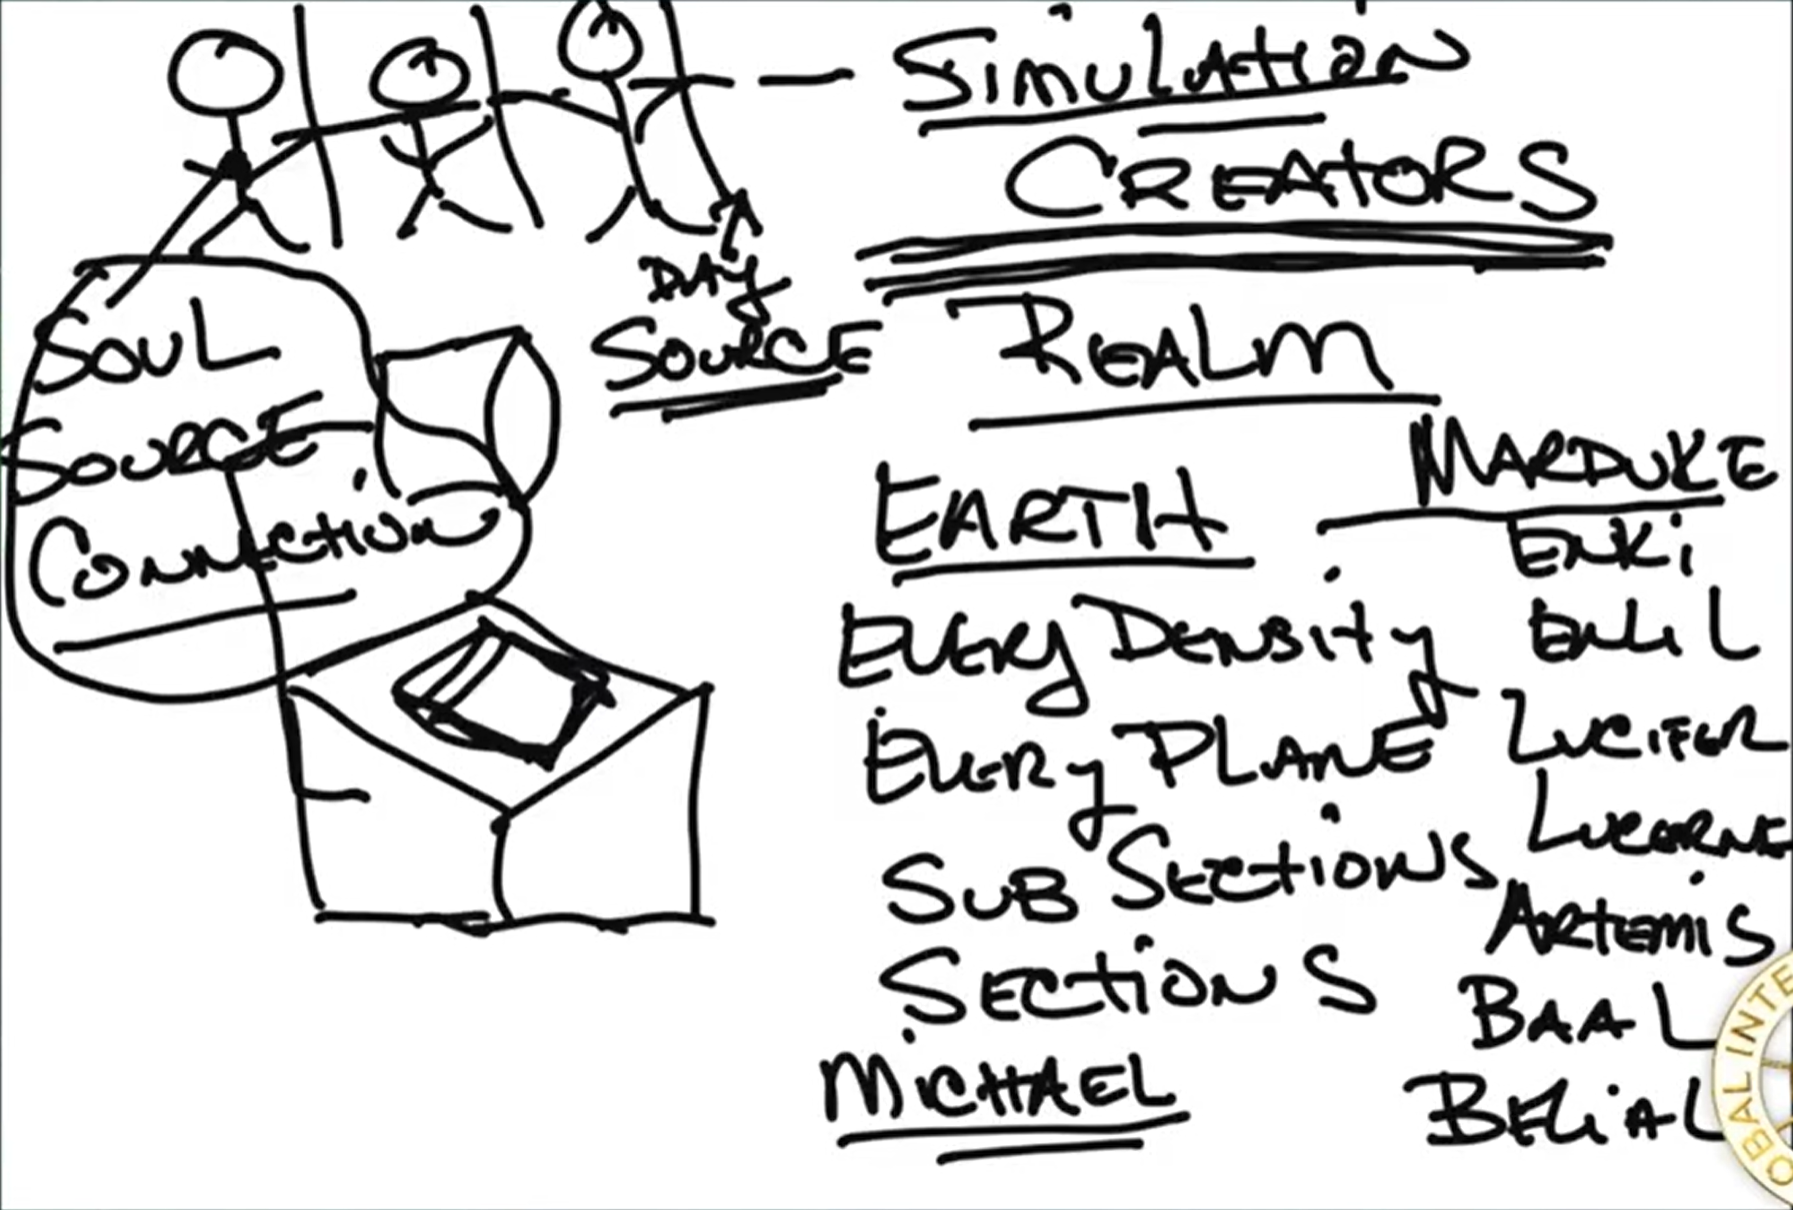 SIMULATION
CREATORS
DAY
SOURCE
REALM
SOUL
SOURCE
CONNECTION
EARTH
EVERY DENSITY
EVERY PLANE
SUB SECTIONS
SECTIONS
MICHAEL
MARDUKE
ENKi
ENLiL
LUCIFER
LUCERNE
ARTEMIS
BAAL
BELIAL
OBAL INTE